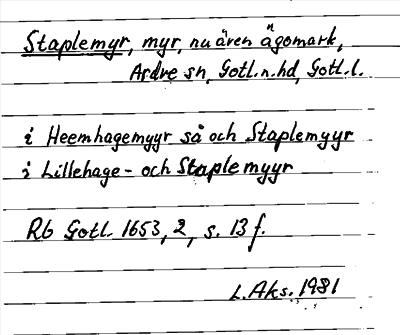 Staplemyr, myr, nu även ägomark,
Ardre sn, Gotl. n. hd, Gotl. l.
i Heemhagemyyr så och Staplemyyr
i Lillehage- och Staplemyyr
Rb Gotl. 1653, 2, s. 13 f.
L. Aks. 1981